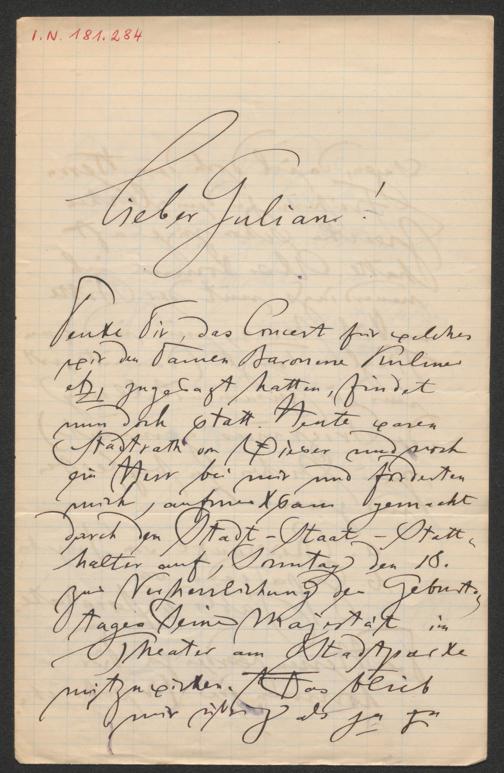 I.N. 181.284
Lieber Julian!
Denke Dir, das Concert für welches
wir den Damen Baronesse Kulmer
etz, zugesagt hatten, findet
nun doch statt. Heute waren
Stadtrath on und noch
ein Herr bei mir und forderten
mich, aufmerksam gemacht
durch den Stadt-Staat-Statt-
halter auf, Sonntag den 18.
zur Verherrlichung des Geburts
tages Seiner Majestät im
Theater am Stadtparke
mitzuwirken. Das blieb
mir übrig als ja zu